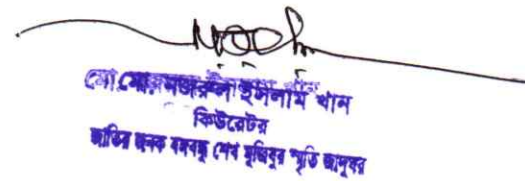 মোঃ নজরুল ইসলাম খান
কিউরেটর
জাতির জনক বঙ্গবন্ধু শেখ মুজিবুর স্মৃতি জাদুঘর